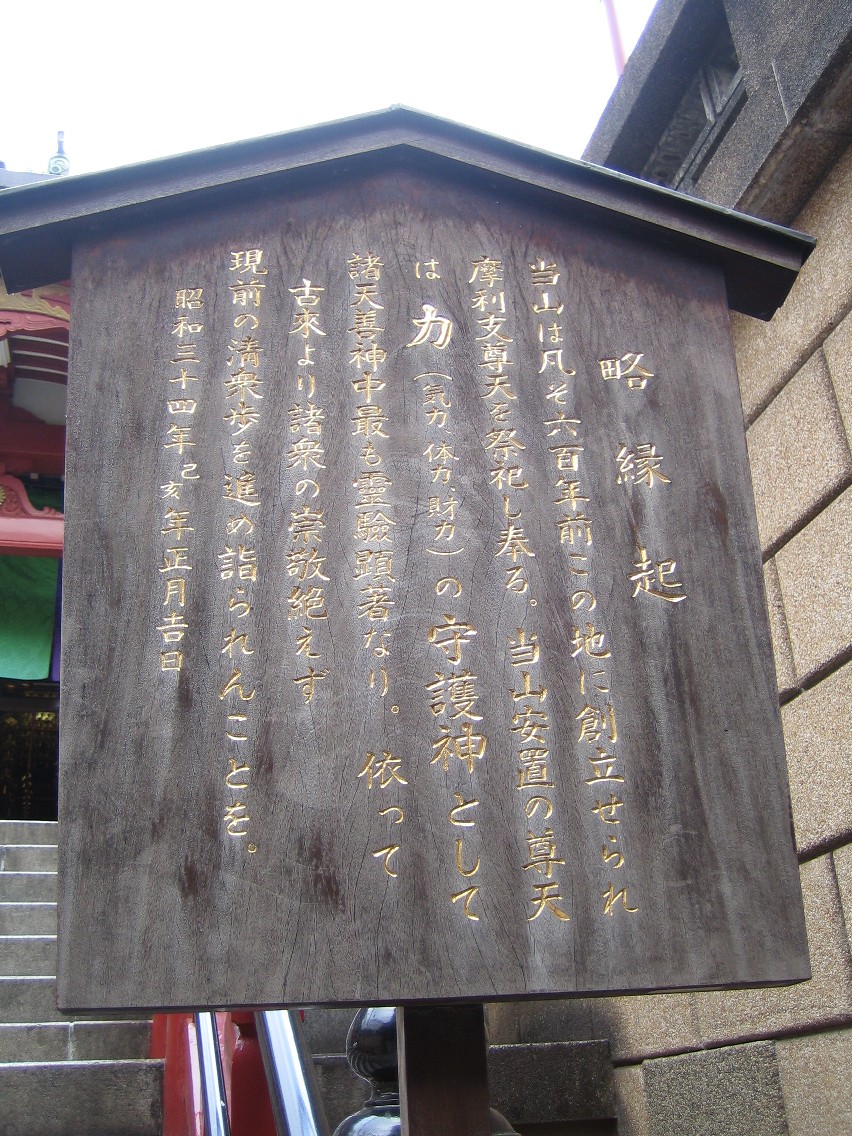 略縁起
当山は凡そ六百年前この地に創立せられ
摩利支尊天を祭祀し奉る。当山安置の尊天
は力(気力、体力、財力)の守護神として
諸天善神中最も霊驗顕著なり。依って
古來より諸衆の崇敬絶えず
現前の清衆歩を進め詣られんことを。
昭和三十四年己亥年正月吉日